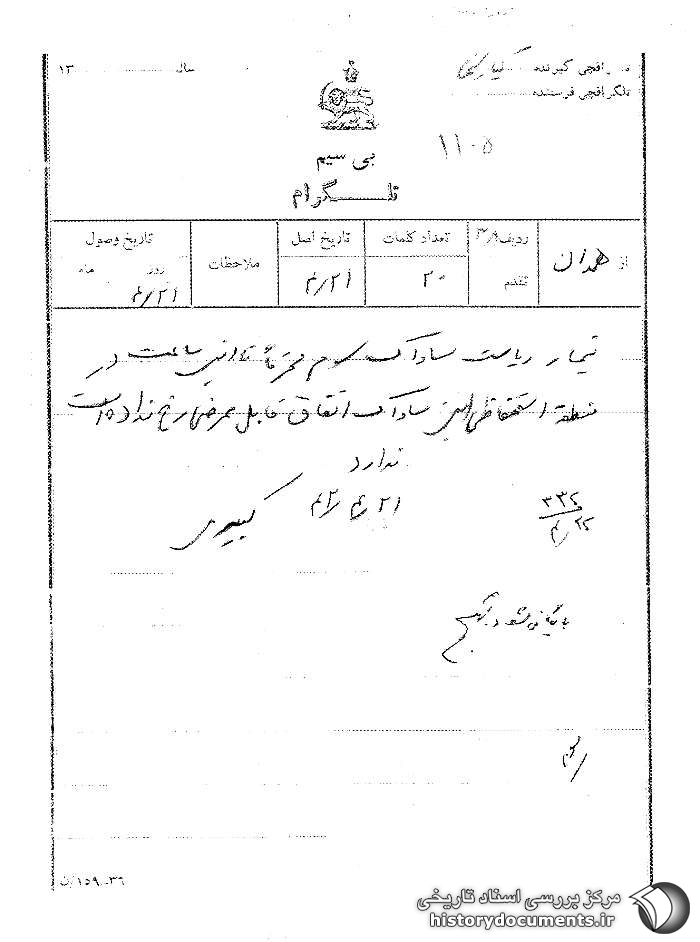 تلگرافچی گیرنده
سال ۱۳
تلگرافچی فرستنده
۱۱۰۵
بی سیم
تلگرام
از همدان
ردیف
تقدم
تعداد کلمات
۲۰
تاریخ اصل
۴/۲۱
ملاحظات
تاریخ وصول
روز ماه
۴/۲۱
تیمسار ریاست ساواک سوم محترماً تا این ساعت در
منطقه استحفاظی این ساواک اتفاق قابل عرضی رخ نداده است
ندارد
۲۱/۴/۴۲
کبیری
۳۳۲
۴/۲۲
بایگانی شود
۱۵۹-۳۶/ن
مرکز بررسی اسناد تاریخی
historydocuments.ir